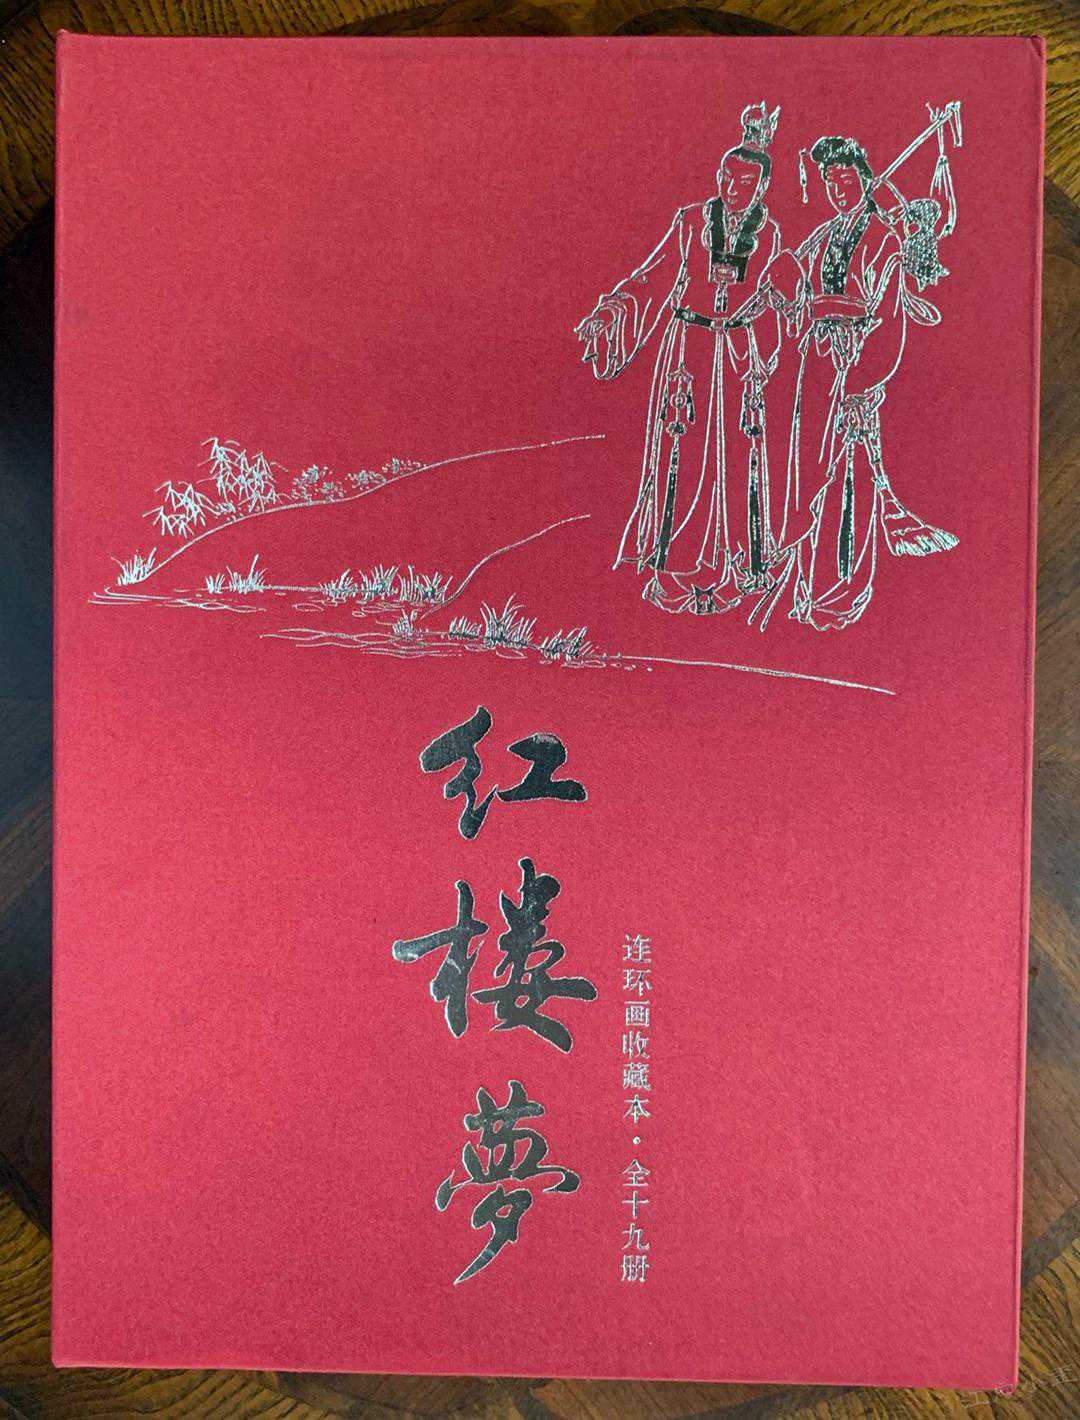 红楼夢
连环画收藏本·全十九册